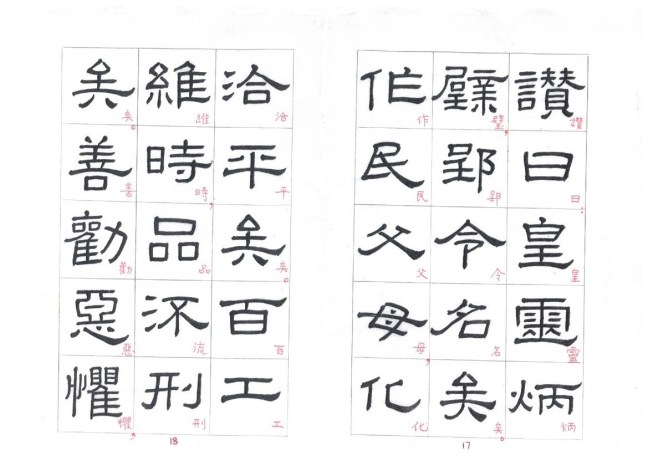 讚曰皇靈炳
讚曰：皇靈炳
璧郢令名矣
璧，郢令名矣。
作民父母化
作民父母，化
17
洽平矣百工
洽平矣。百工
維時品流刑
維時，品流刑
矣善勸惡懼
矣。善勸惡懼，
18